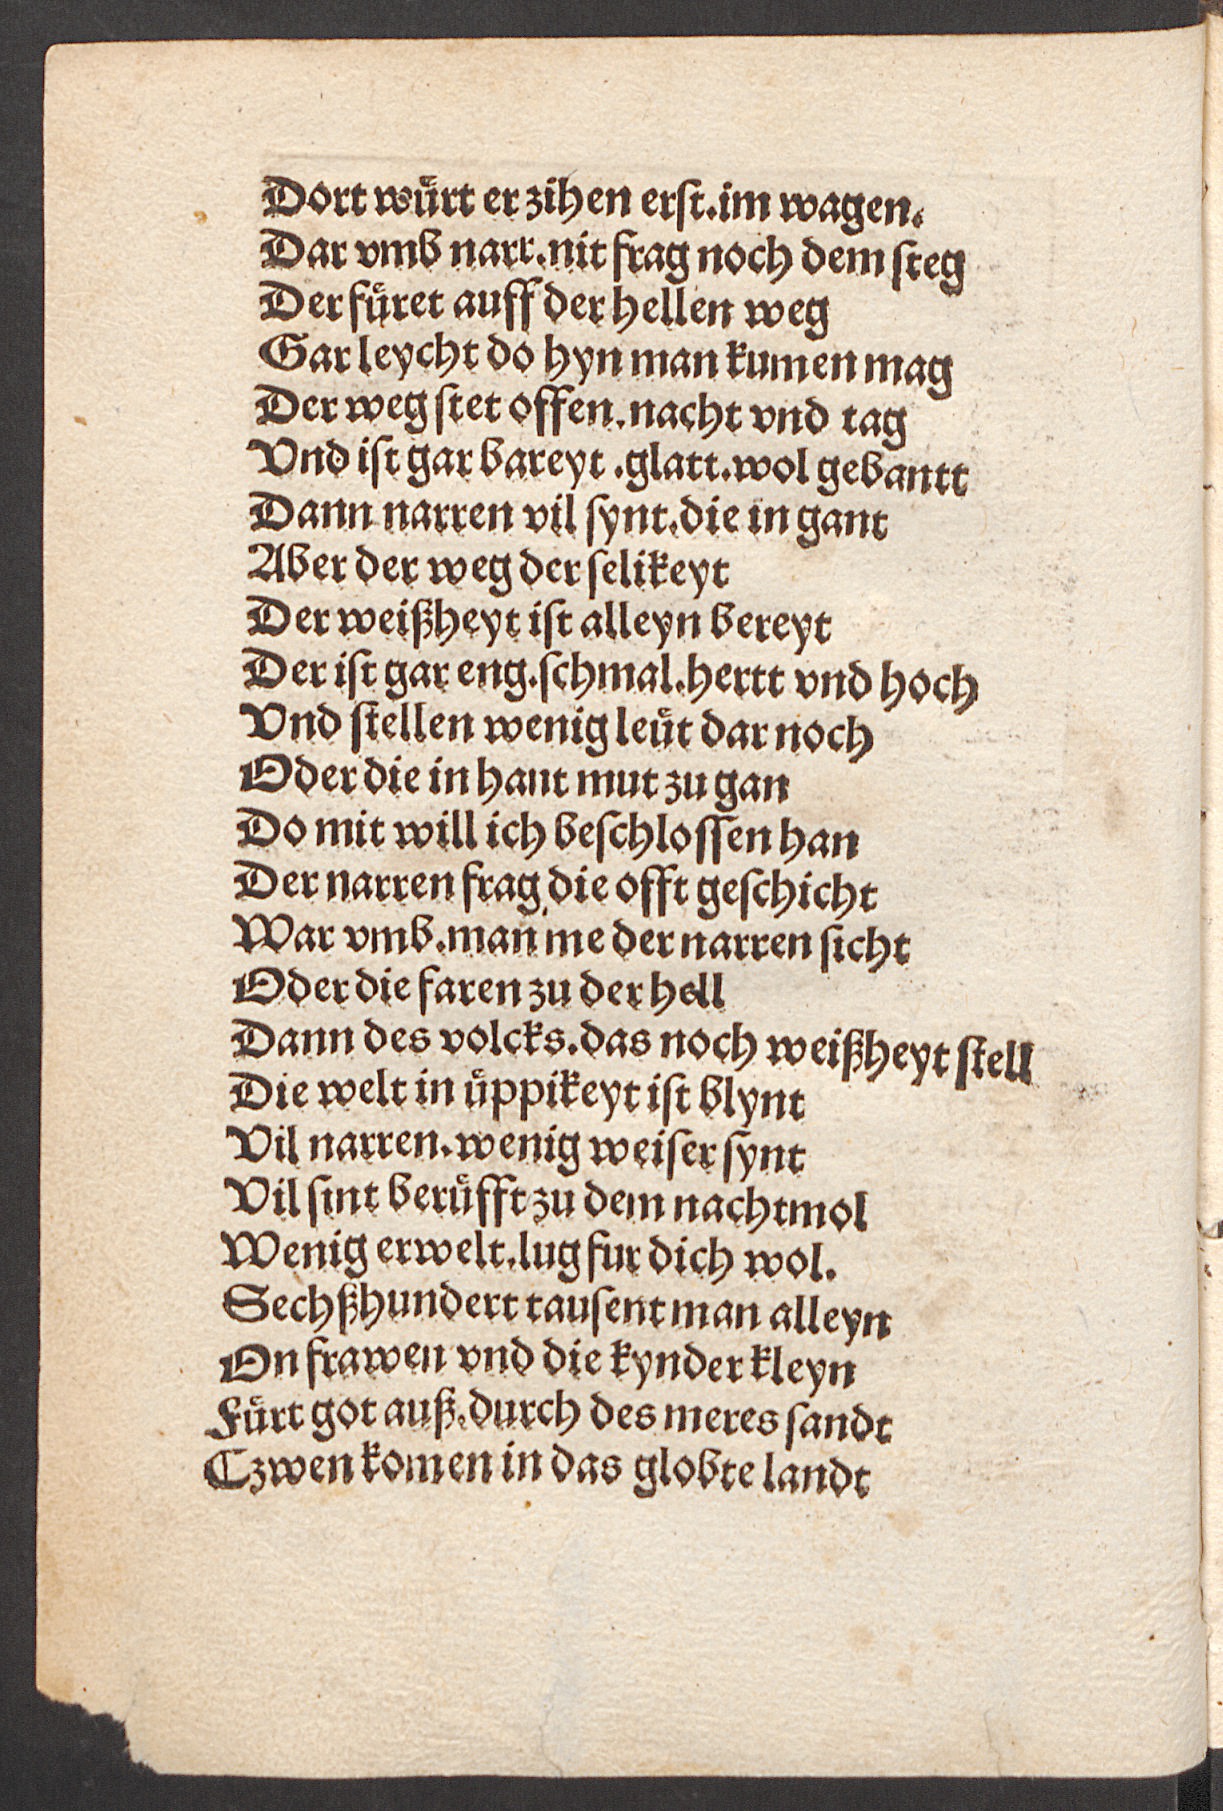 Dort wuͤrt er zihen erſt.im wagen.
Dar vmb narr.nit frag noch dem ſteg
Der fuͤret auff der hellen weg
Gar leycht do hyn man kumen mag
Der weg ſtet offen.nacht vnd tag
Vnd iſt gar bareyt .glatt.wol gebantt
Dann narren vil ſynt.die in gant
Aber der weg der ſelikeyt
Der weißheyt iſt alleyn bereyt
Der iſt gar eng.ſchmal.hertt vnd hoch
Vnd ſtellen wenig leuͤt dar noch
Oder die in hant mut zu gan
Do mit will ich beſchloſſen han
Der narren frag die offt geſchicht
War vmb.man me der narren ſicht
Oder die faren zu der hell
Dann des volcks.das noch weißheyt ſtell
Die welt in uͤppikeyt iſt blynt
Vil narren.wenig weiſer ſynt
Vil ſint beruͤfft zu dem nachtmol
Wenig erwelt.lug fur dich wol.
Sechßhundert tauſent man alleyn
On frawen vnd die kynder kleyn
Fuͤrt got auß.durch des meres ſandt
Czwen komen in das globte landt